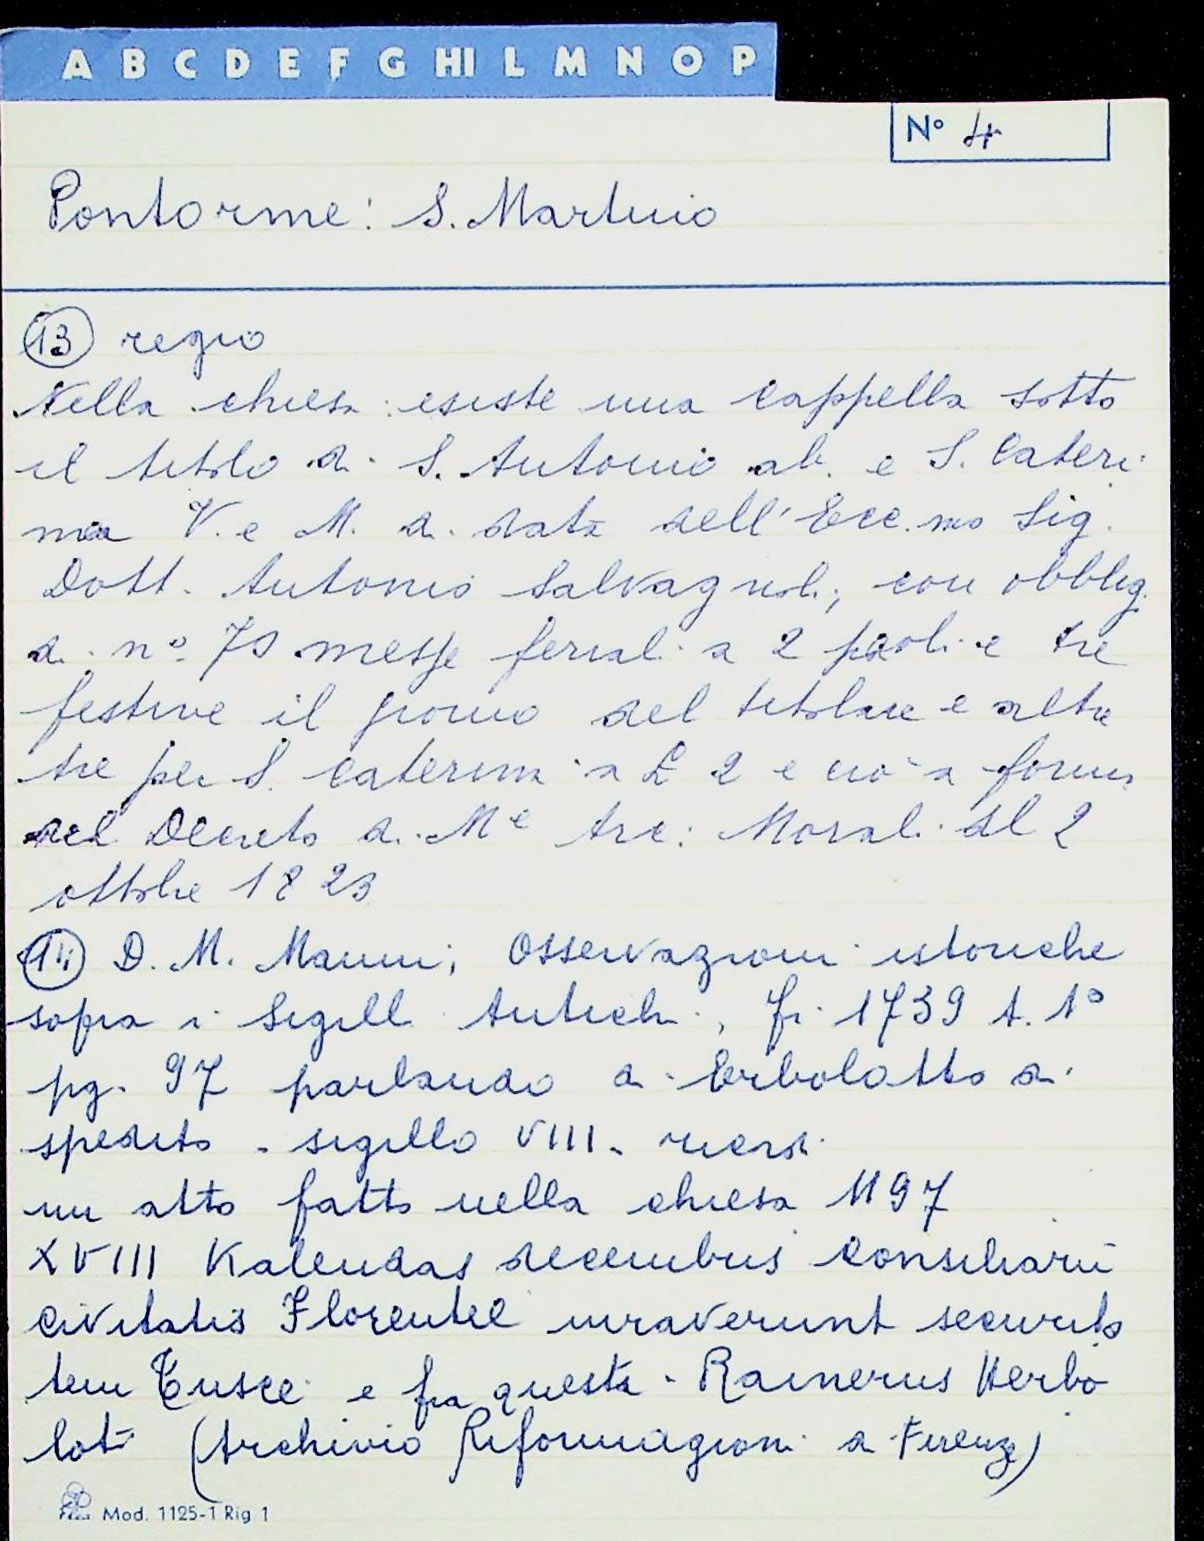 A B C D E F G HI L M N O P
N° 4
Pontorme: S. Martino
13 regio
Nella chiesa esiste una cappella sotto
il titolo di S. Antonio ab. e S. Cateri
na V. e M. di data dell'Ecc.mo Sig.
Dott. Antonio Salvagnoli, con obblig.
di n° 70 messe feriali a 2 paoli e tre
festive il giorno del titolare e altre
tre per S. Caterina a £ 2 e ciò a forma
del Decreto di M Arc: Morali del 2
ottobre 1823
14 D. M. Manni; Osservazioni istoriche
sopra i Sigilli Antichi, Fi. 1739 t. 1°
pg. 97 parlando di Erbolotto di
spedito - sigillo VIII.
un atto fatto nella chiesa 1197
XVIII Kalendas decembris Consiliarii
civitatis Florentie iuraverunt securita
tem Tusce e fra questi - Rainerus Herbo
loti (Archivio Riformagioni a Firenze)
Mod. 1125-1 Rig 1